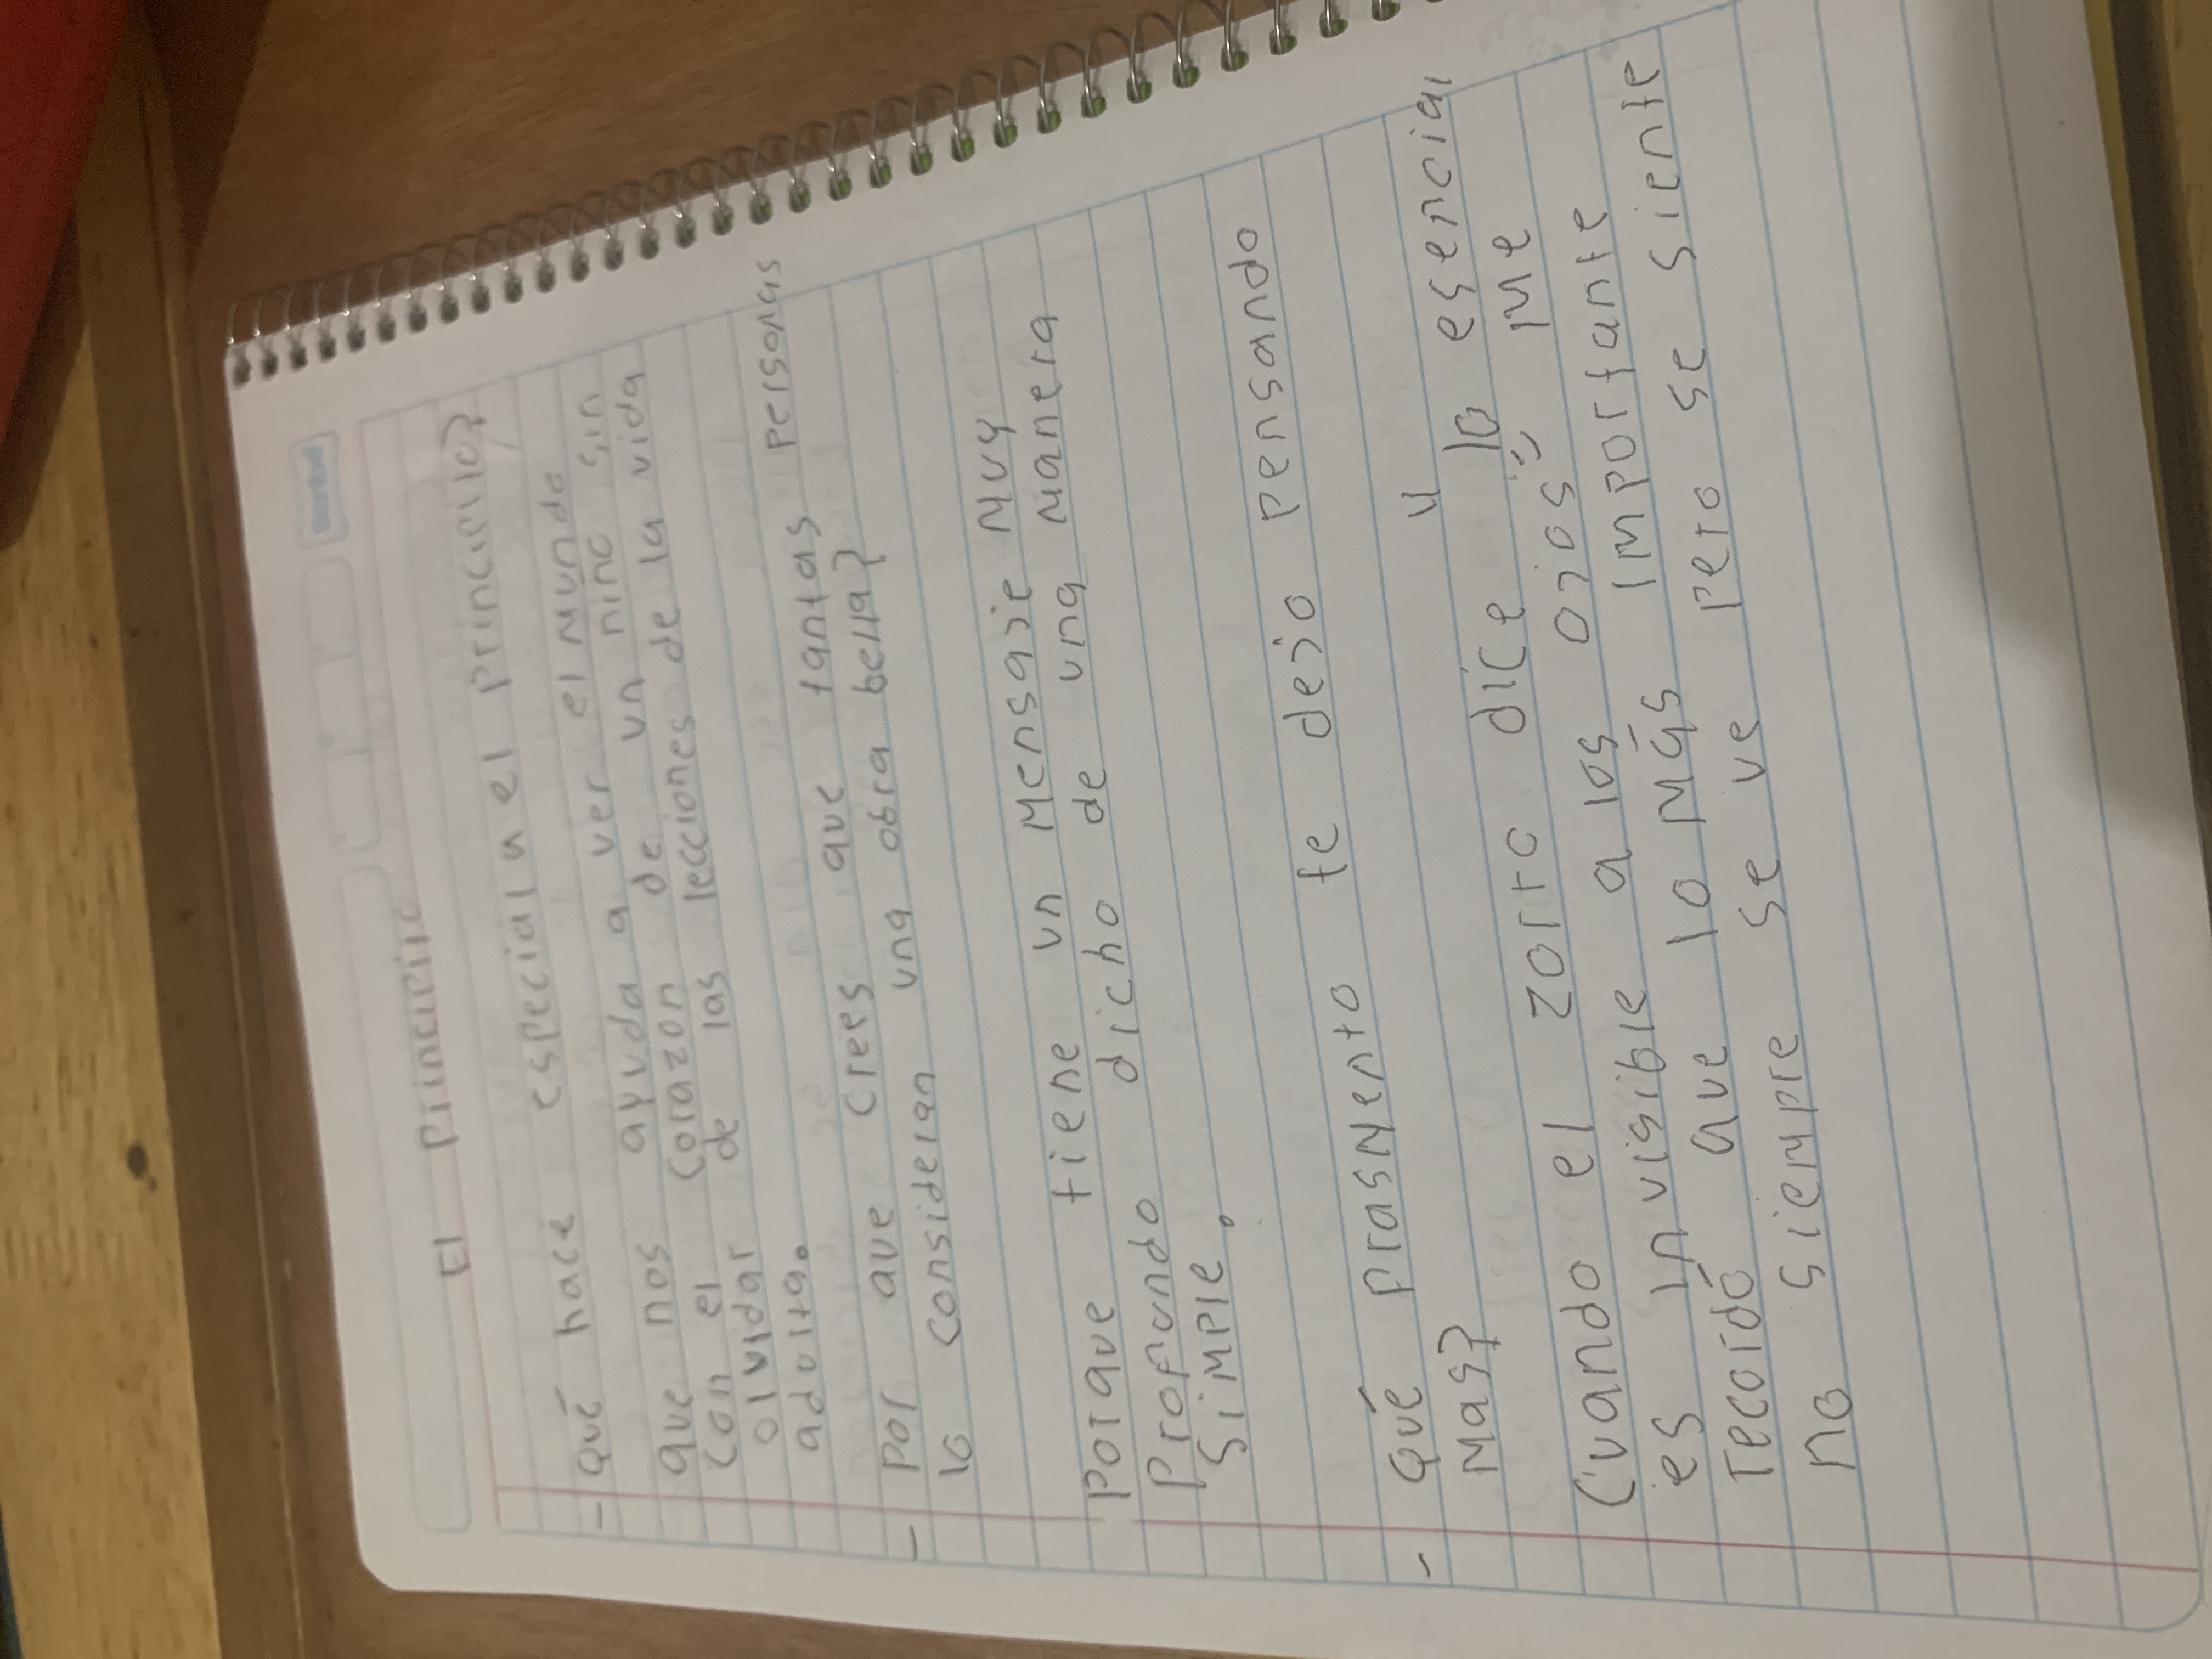 El Principito
- Qué hace especial a el principito?
que nos ayuda a ver el mundo
con el corazon de un niño sin
olvidar de las lecciones de la vida
adulta.
- Por que crees que tantas personas
lo consideran una obra bella?
Porque tiene un mensaje muy
profundo dicho de una manera
simple.
- Qué prasmento te dejo pensando
mas?
Cuando el zorro dice "lo esencial
es invisible a los ojos" me
recordó que lo más importante
no siempre se ve pero se siente